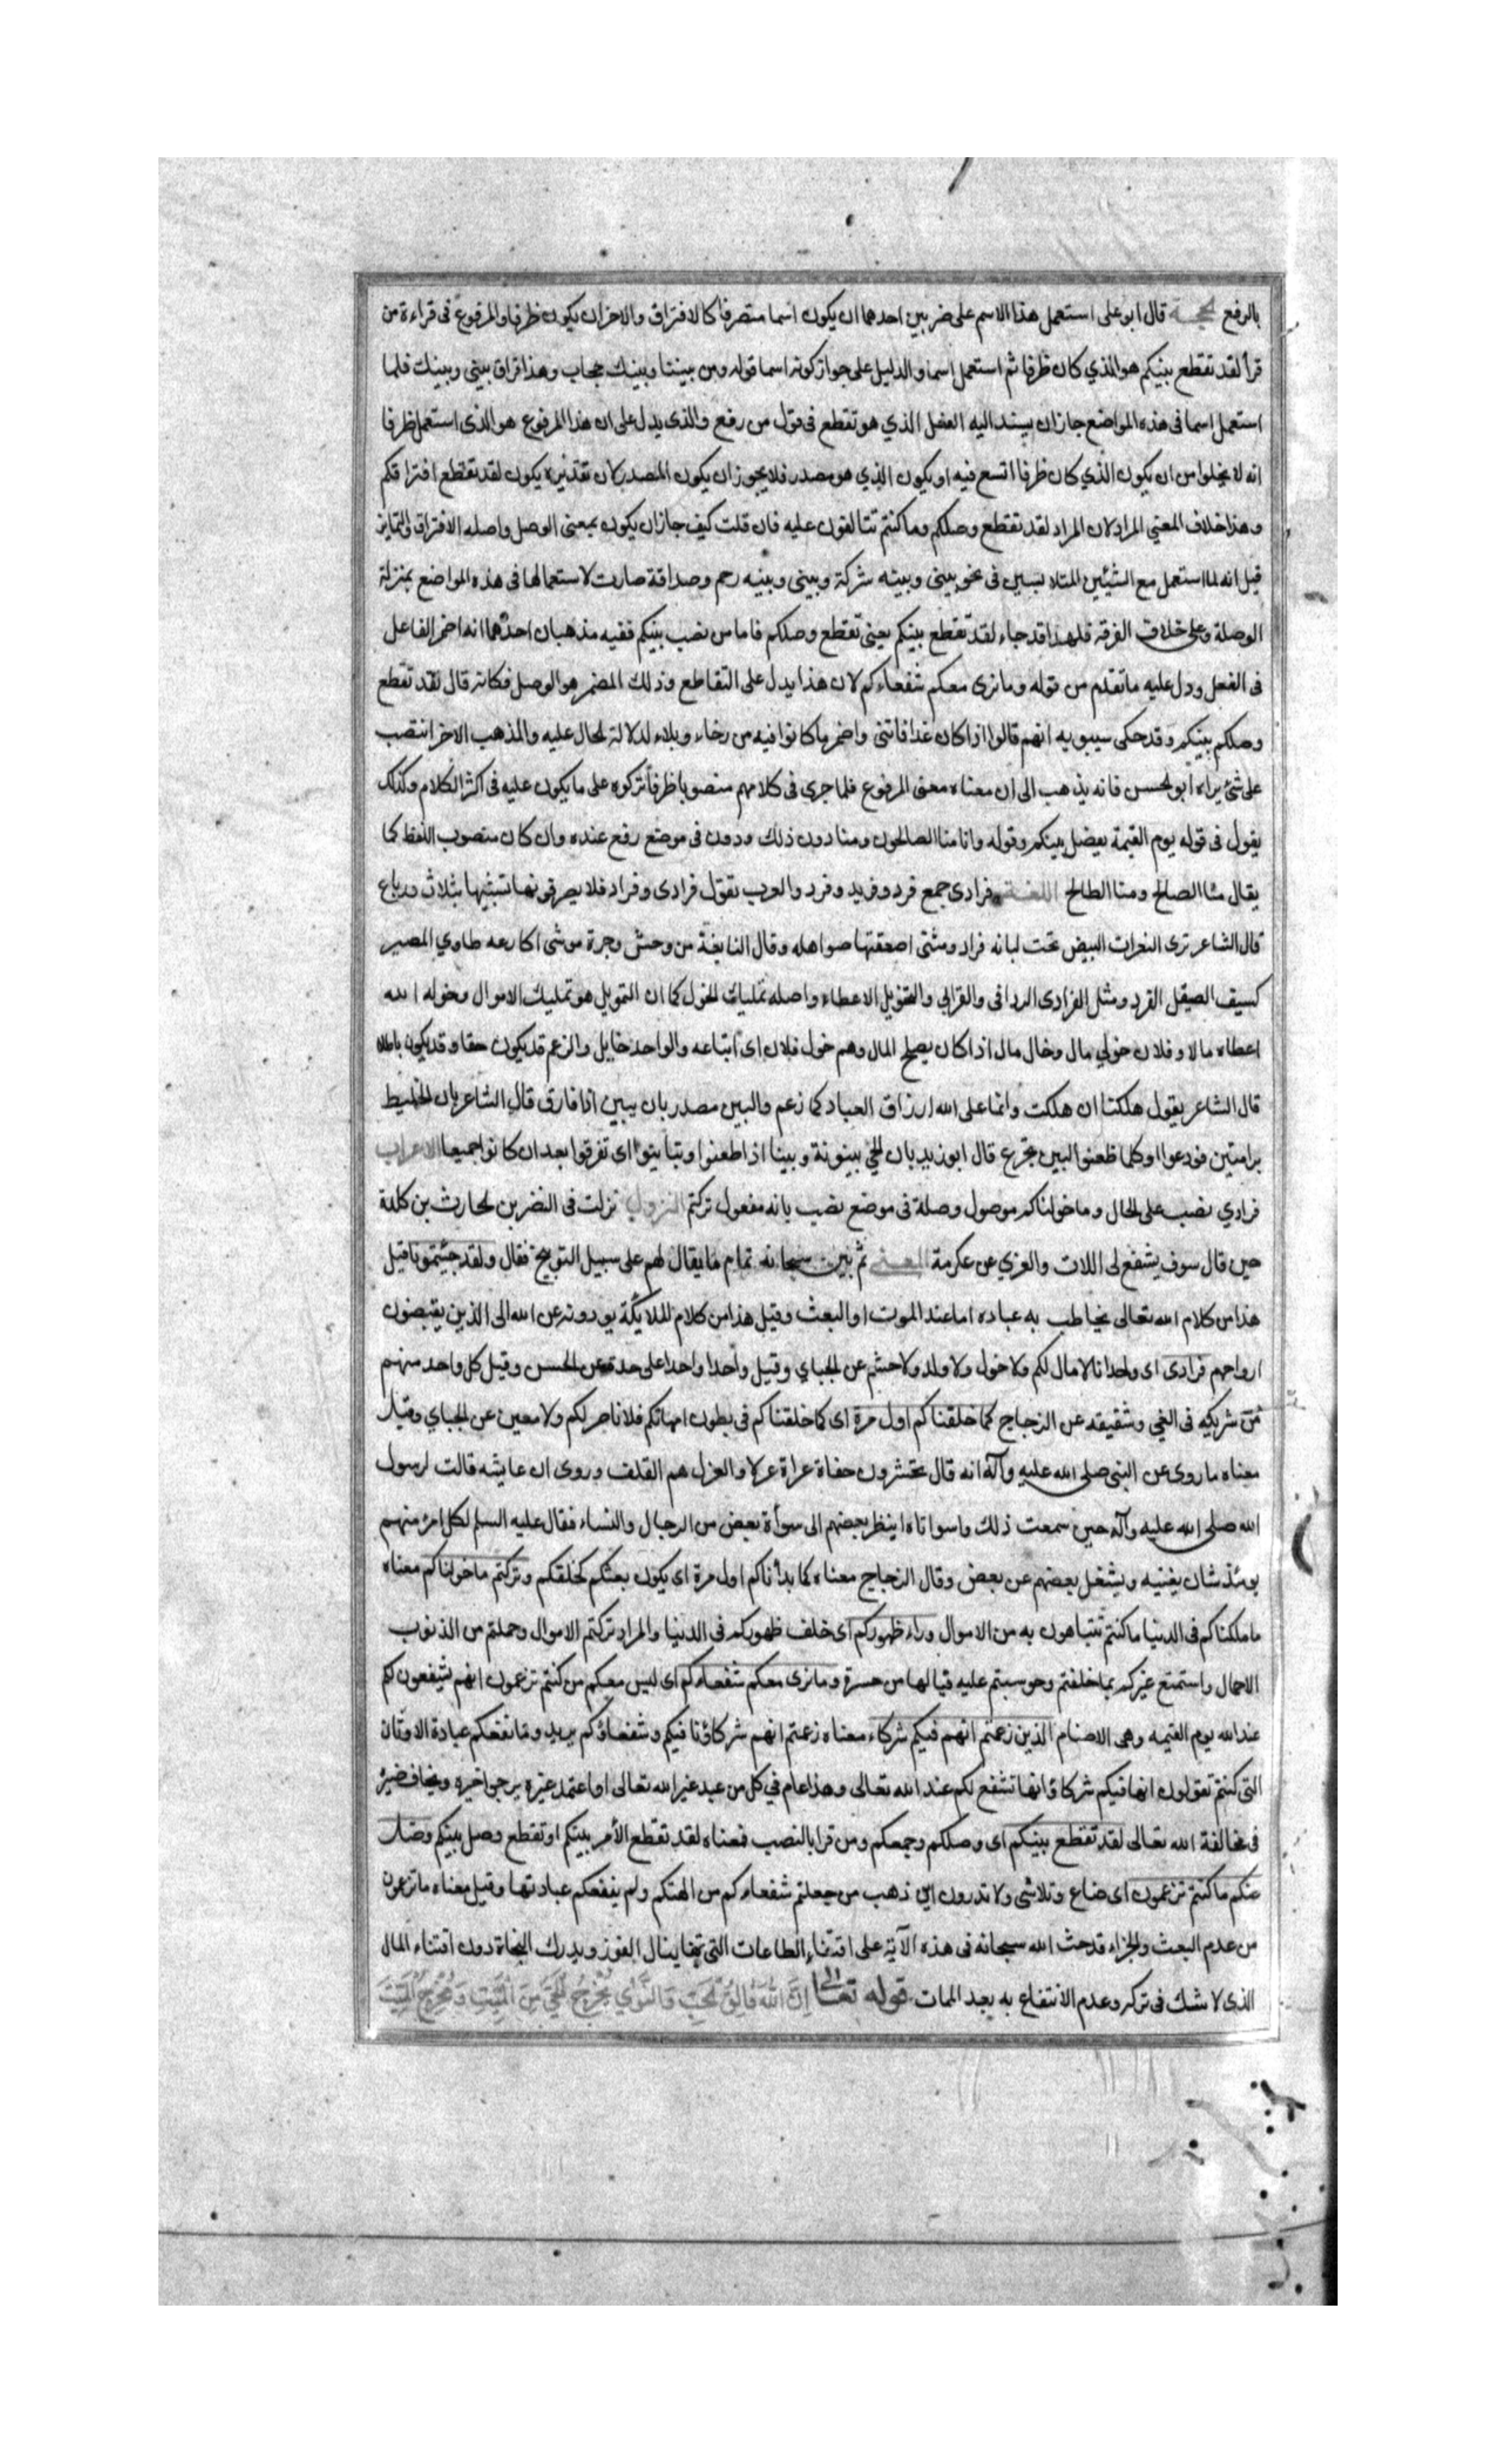 بالرفع الحجة قال ابو على استعمل هذا الاسم على ضربين احدهما ان يكون اسما متصرفا كالافتراق والاخر ان يكون ظرفا والمرفوع فى قراءة من
قرأ لقد تقطع بينكم هو الذي كان ظرفا ثم استعمل اسما والدليل على جواز كونه اسما قوله ومن بيننا وبينك حجاب وهذا فراق بينى وبينك فلما
استعمل اسما فى هذه المواضع جاز ان يسند اليه الفعل الذي هو تقطع فى قول من رفع والذى يدل على ان هذا المرفوع هو الذى استعمل ظرفا
انه لا يخلوا من ان يكون الذي كان ظرفا اتسع فيه او يكون الذي هو مصدر فلا يجوز ان يكون المصدر لان تقديره يكون لقد تقطع افتراقكم
وهذا خلاف المعني المراد لان المراد لقد تقطع وصلكم وما كنتم تتالفون عليه فان قلت كيف جاز ان يكون بمعنى الوصل واصله الافتراق والتماين
قيل انه لما استعمل مع الشيئين المتلابسين فى نحو بينى وبينه شركة وبينى وبينه رحم وصداقة صارت لاستعمالها فى هذه المواضع بمنزلة
الوصلة وعلى خلاف الفرقة فلهذا قد جاء لقد تقطع بينكم بمعنى تقطع وصلكم فاما من نصب بينكم ففيه مذهبان احدهما انه اضمر الفاعل
فى الفعل ودل عليه ما تقدم من قوله وما نرى معكم شفعاءكم لان هذا يدل على التقاطع وذلك المضمر هو الوصل فكانه قال لقد تقطع
وصلكم بينكم وقد حكى سيبويه انهم قالوا اذا كان غدا فاتنى واضمر ما كانوا فيه من رخاء وبلاء لدلالة الحال عليه والمذهب الاخر انتصب
على شئ يراه ابو الحسن فانه يذهب الى ان معناه معنى المرفوع فلما جرى فى كلامهم منصوبا ظرفا تركوه على ما يكون عليه فى اكثر الكلام وكذلك
يقول فى قوله يوم القيمة يفصل بينكم وقوله وانا منا الصالحون ومنا دون ذلك ودون فى موضع رفع عنده وان كان منصوب اللفظ كما
يقال منا الصالح ومنا الطالح اللغة فرادى جمع فرد وفريد وفرد والعرب تقول فرادى وفراد فلا يصرفونها تشبيها بثلاث ورباع
قال الشاعر ترى النعرات البيض تحت لبانه فراد ومثنى اصعقتها صواهله وقال النابغة من وحش وجرة موشى اكارعه طاوي المصير
كسيف الصيقل الفرد ومثل الفرادى الردافى والقرابي والتخويل الاعطاء واصله تمليك الخول كما ان التمويل هو تمليك الاموال وخوله الله
اعطاه مالا وفلان خولي مال وخال مال اذا كان يصلح المال وهم خول فلان اى اتباعه والواحد خايل والزعم قد يكون حقا وقد يكون باطلا
قال الشاعر يقول هلكنا ان هلكت وانما على الله ارزاق العباد كما زعم والبين مصدر بان يبين اذا فارق قال الشاعر بان الخليط
برامتين فودعوا او كلما ظعنوا لبين تجزع قال ابو زيد بان الحي بينونة وبينا اذا ظعنوا وتباينوا اى تفرقوا بعد ان كانوا جميعا الاعراب
فرادي نصب على الحال وما خولناكم موصول وصلة فى موضع نصب بانه مفعول تركتم النزول نزلت فى النضر بن الحارث بن كلدة
حين قال سوف يشفع لى اللات والعزي عن عكرمة المعنى ثم بين سبحانه تمام ما يقال لهم على سبيل التوبيخ فقال ولقد جئتمونا قيل
هذا من كلام الله تعالى يخاطب به عباده اما عند الموت او البعث وقيل هذا من كلام الملايكة يودونه عن الله الى الذين يقبضون
ارواحهم فرادى اى وحدانا لا مال لكم ولا خول ولا ولد ولا حشم عن الجباي وقيل واحدا واحدا على حدة عن الحسن وقيل كل واحد منهم
من شريكه فى الغي وشقيقه عن الزجاج كما خلقناكم اول مرة اى كما خلقناكم فى بطون امهاتكم فلا ناصر لكم ولا معين عن الجباي وقيل
معناه ما روى عن النبى صلى الله عليه وآله انه قال تحشرون حفاة عراة عرلا والعزل هم القلف وروى ان عايشه قالت لرسول
الله صلى الله عليه وآله حين سمعت ذلك واسوأتاه اينظر بعضهم الى سوأة بعض من الرجال والنساء فقال عليه السلم لكل امرئ منهم
يومئذ شان يغنيه ويشغل بعضهم عن بعض وقال الزجاج معناه كما بدأناكم اول مرة اى يكون بعثكم كخلقكم وتركتم ما خولناكم معناه
ما ملكناكم فى الدنيا ما كنتم تتباهون به من الاموال وراء ظهوركم اى خلف ظهوركم فى الدنيا والمراد تركتم الاموال وحملتم من الذنوب
الاحمال واستمتع غيركم بما خلفتم وحوسبتم عليه فيا لها من حسرة وما نرى معكم شفعاءكم اى ليس معكم من كنتم تزعمون انهم يشفعون لكم
عند الله يوم القيمه وهى الاصنام الذين زعمتم انهم فيكم شركاء معناه زعمتم انهم شركاؤنا فيكم وشفعاؤكم يريد وما نفعكم عبادة الاوثان
التى كنتم تقولون انها فيكم شركاؤ انها تشفع لكم عند الله تعالى وهذا عام في كل من عبد غير الله تعالى او اعتمد غيره يرجوا خيره ويخاف ضيره
فى مخالفة الله تعالى لقد تقطع بينكم اى وصلكم وجمعكم ومن قرا بالنصب فمعناه لقد تقطع الأمر بينكم او تقطع وصل بينكم وضل
عنكم ما كنتم تزعمون اى ضاع وتلاشى ولا تدرون اين ذهب من جعلتم شفعاءكم من الهتكم ولم ينفعكم عبادتها وقيل معناه ما تزعمون
من عدم البعث والجزاء قد حث الله سبحانه فى هذه الآية على اقتناء الطاعات التى بها ينال الفوز ويدرك النجاة دون اقتناء المال
الذى لا شك فى تركه وعدم الانتفاع به بعد الممات قوله تعالى إن الله فالق الحب والنوى يخرج الحي من الميت ومخرج الميت